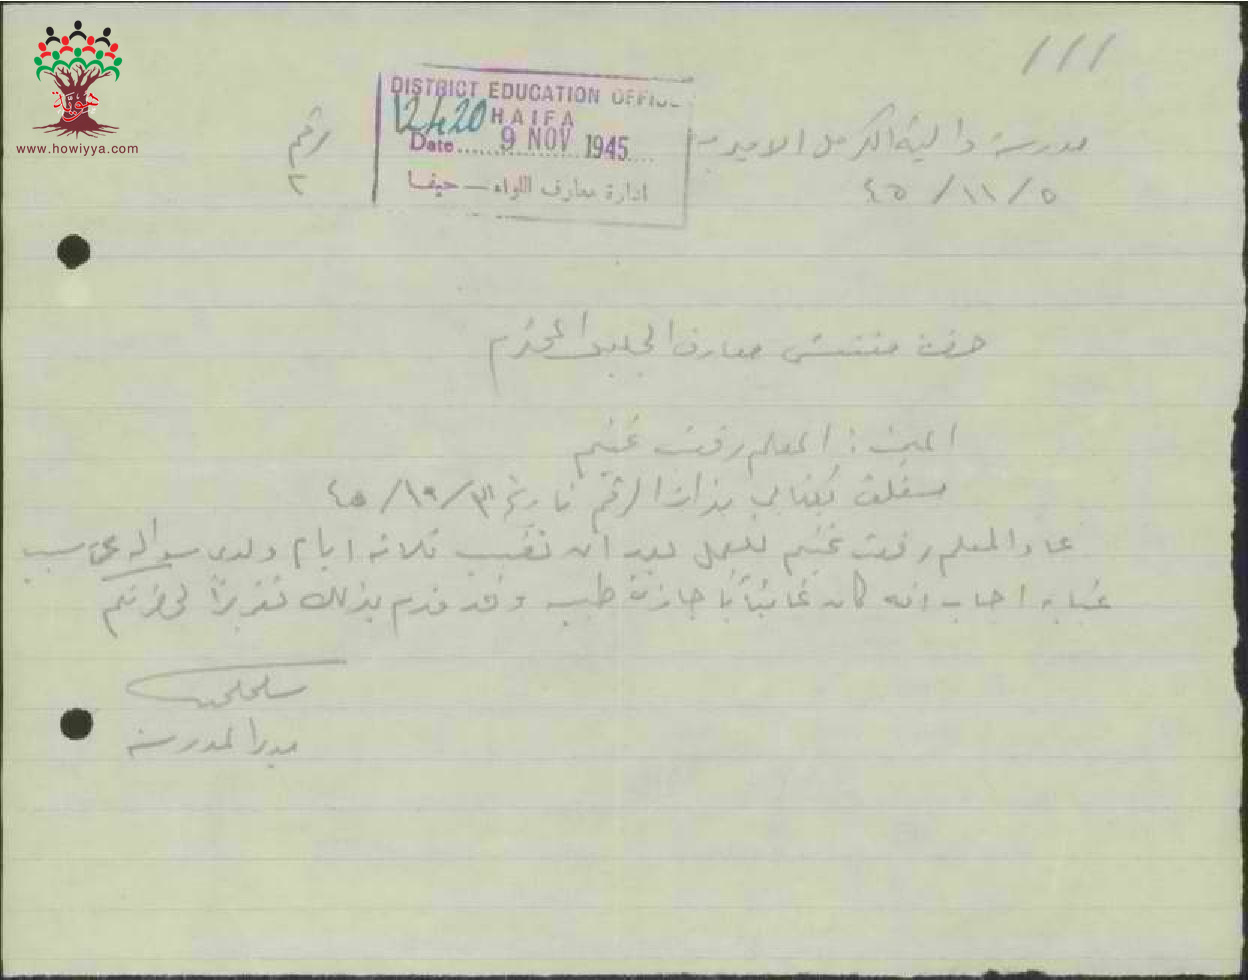 DISTRICT EDUCATION OFFICE
12420 HAIFA
Date 9 NOV 1945
ادارة معارف اللواء – حيفا
هوية
www.howiyya.com
مدرسة دالية الكرمل الاميرية
رقم
٢
٤٥/١١/٥
حضرة مفتش معارف الجليل المحترم
المبحث : المعلم رفعت غنيم
بكتابي بذات الرقم تاريخ
عاد المعلم رفعت غنيم للعمل بعد ان تغيب ثلاثة ايام ولدى سواله عن سبب
غيابه اجاب انه كان غائباً باجازة طبيب وقد قدم بذلك تقريراً لحضرتكم
مدير المدرسة